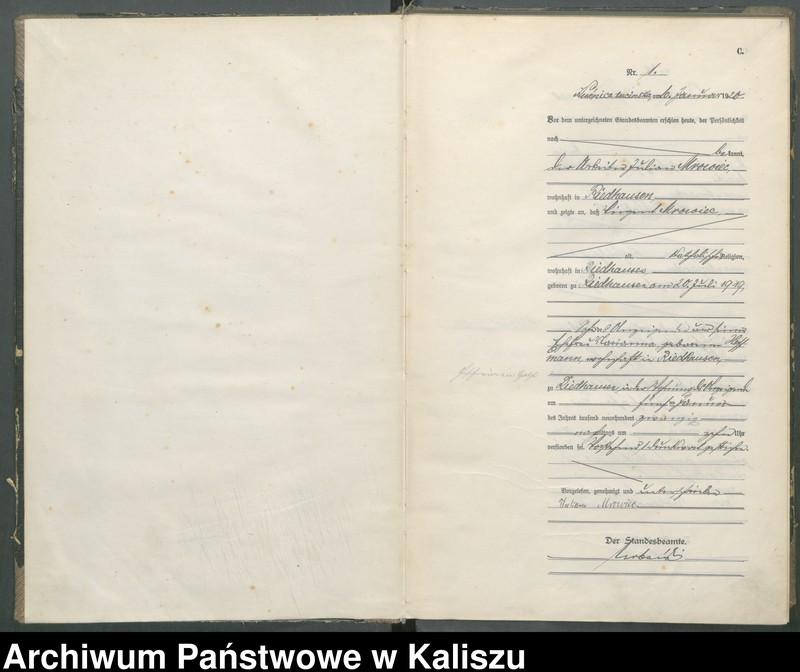 C.
Nr. 1.
am 6. Januar 1920.
Vor dem unterzeichneten Standesbeamten erschien heute, der Persönlichkeit
nach
be kannt,
der Arbeiter Julian Mrowiec,
wohnhaft in Riedhausen
und zeigte an, daß Mrowiec,
alt, katholischer Religion,
wohnhaft in Riedhausen
geboren zu Riedhausen am 20. Juli 1919,
Sohn des Anzeigenden und seiner
Ehefrau Marianna geborenen Hoff-
mann, wohnhaft in Riedhausen,
zu Riedhausen in der Wohnung des Anzeigenden
am fünften Januar
des Jahres tausend neunhundert zwanzig
nachmittags um zehn Uhr
verstorben sei. Vorstehend
Vorgelesen, genehmigt und unterschrieben
Julian Mrowiec
Der Standesbeamte.
Archiwum Państwowe w Kaliszu